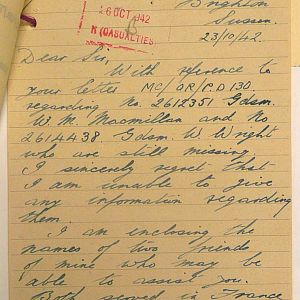 Brighton
Sussex.
23/10/42.
26 OCT 1942
(CASUALTIES)
Dear Sir,
With reference to
your letter MC/OR/P.D 130.
regarding No. 2612351 Gdsm.
W. M. Macmillan and No
2614438 Gdsm. W. Wright
who are still missing.
I sincerely regret that
I am unable to give
any information regarding
them.
I am enclosing the
names of two friends
of mine who may be
able to assist you.
Both served in France